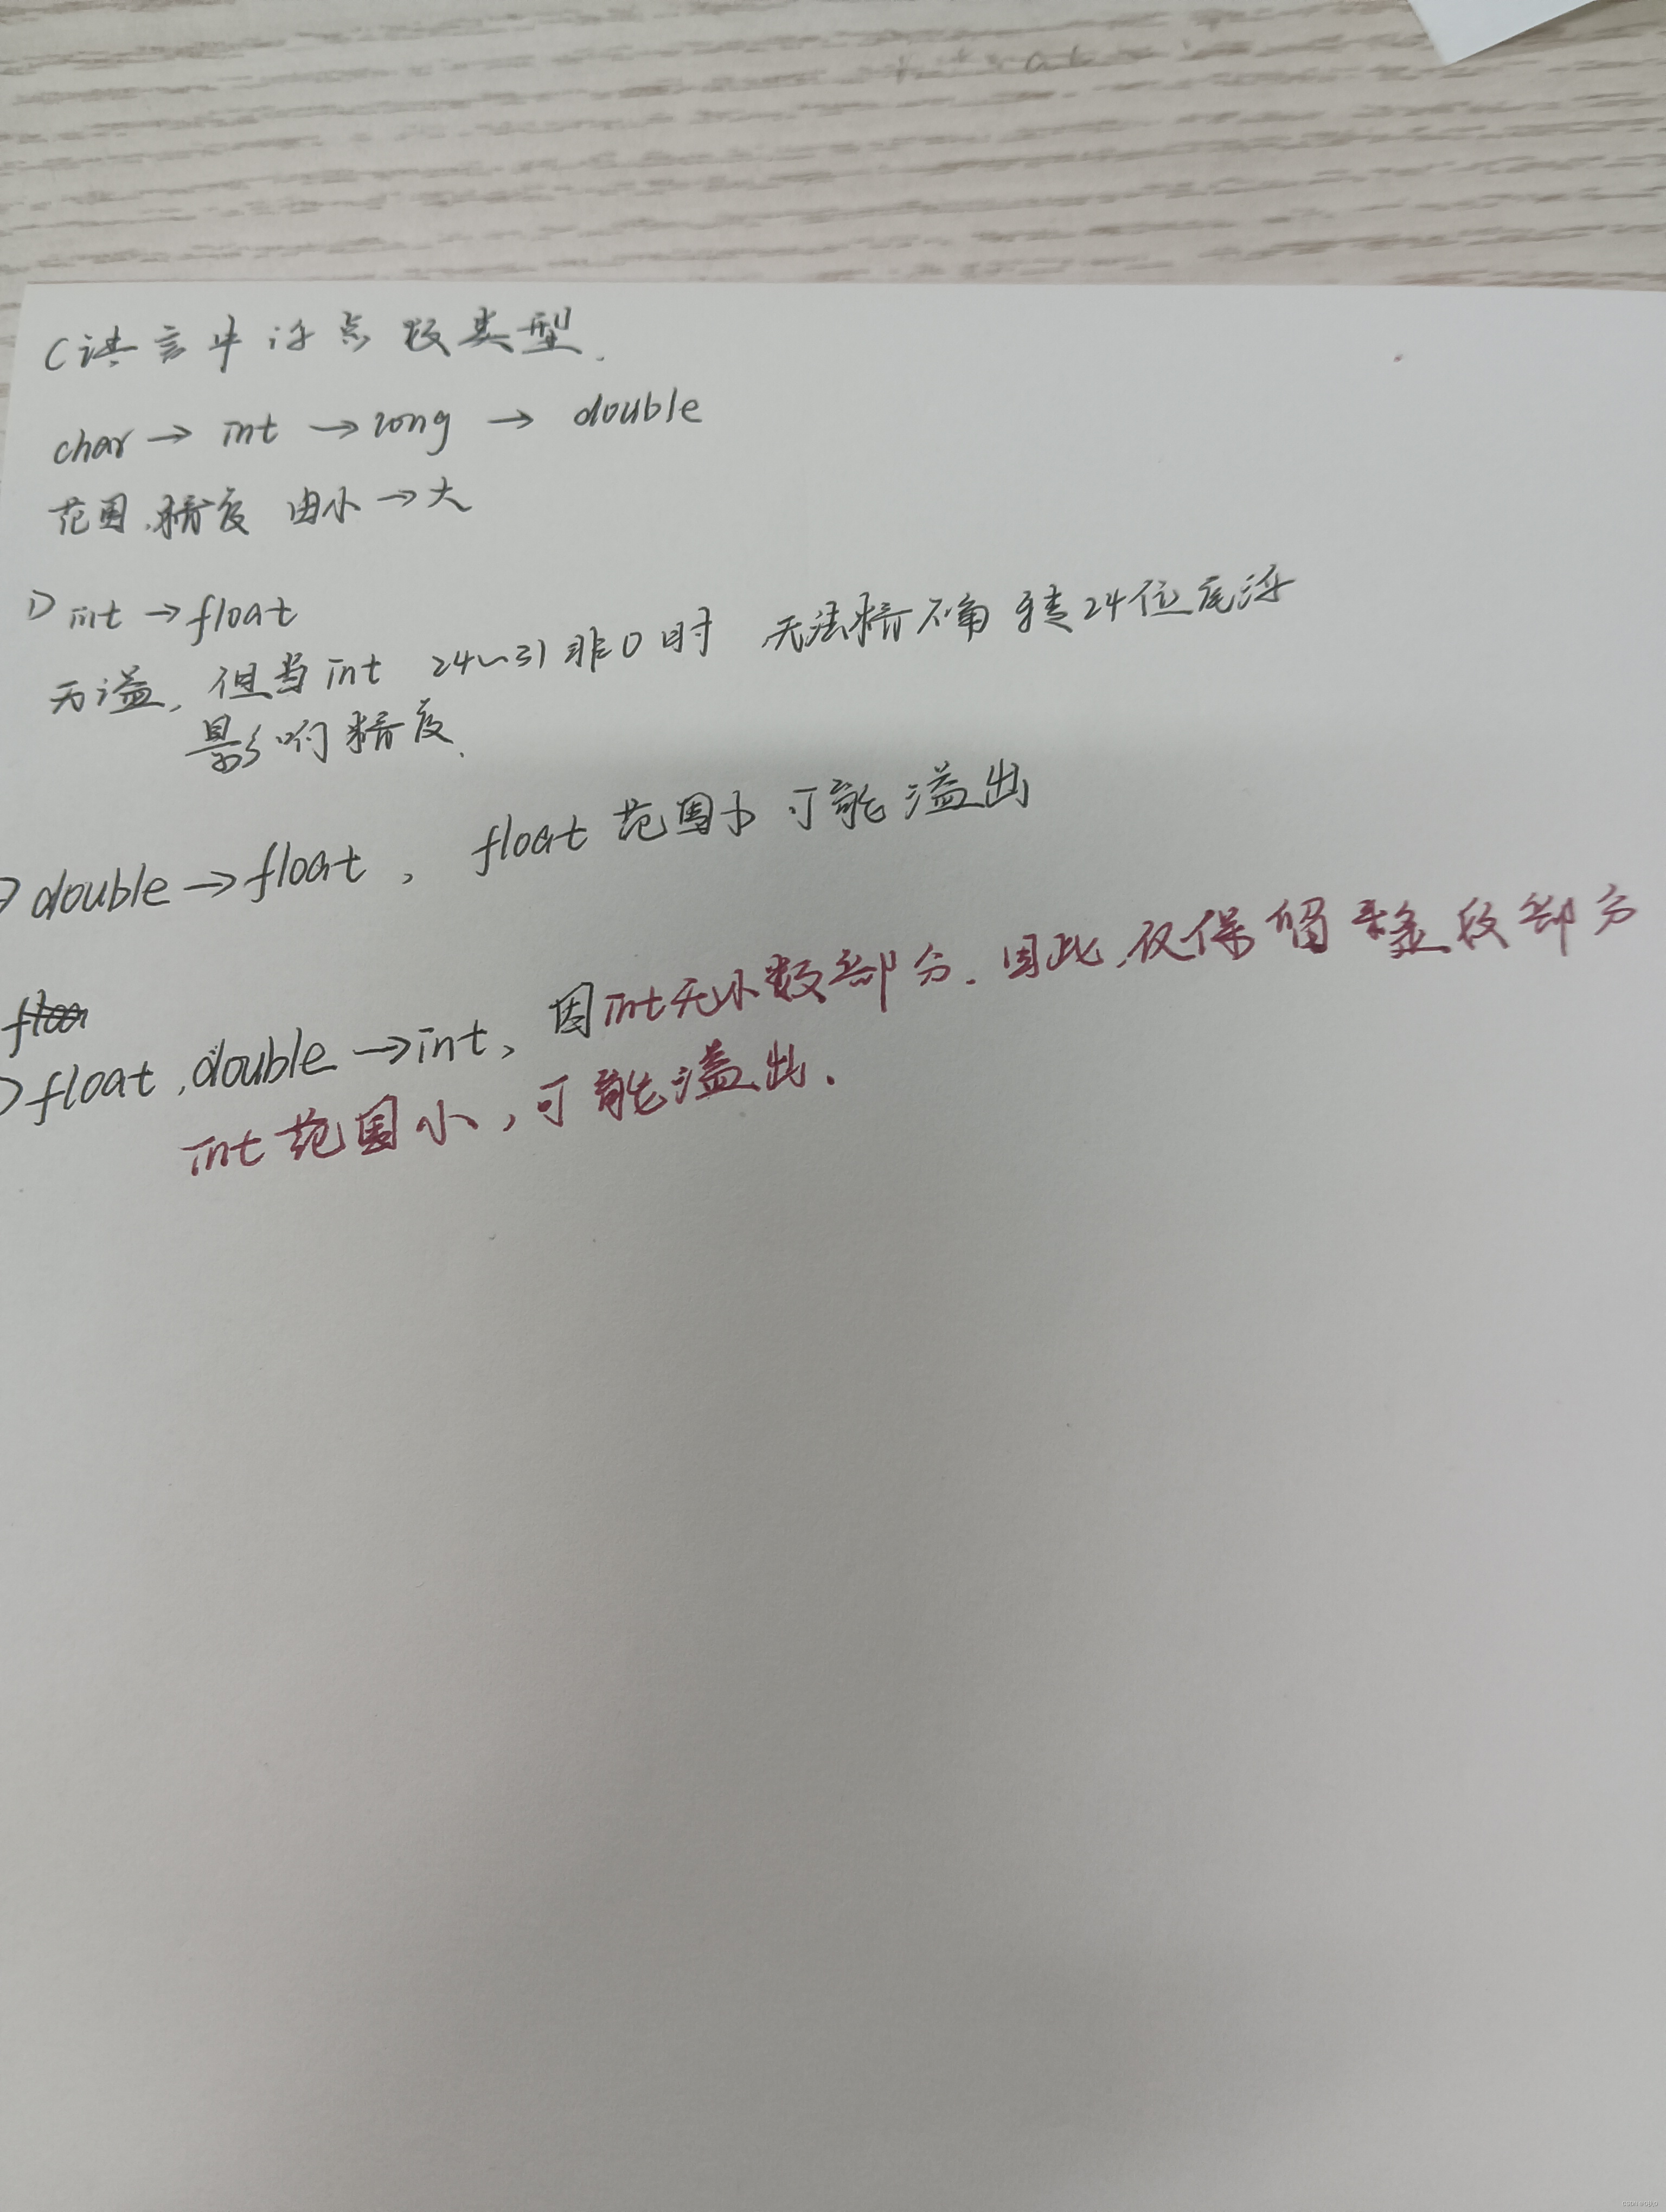 C语言中浮点数类型.
char → int → long → double
范围.精度 由小→大
1) int → float
不溢, 但当int 24~31非0时 无法精确转24位浮
影响精度.
double → float , float范围小可能溢出
float,double→int, 因int无小数部分.因此,仅保留整数部分
int范围小,可能溢出.